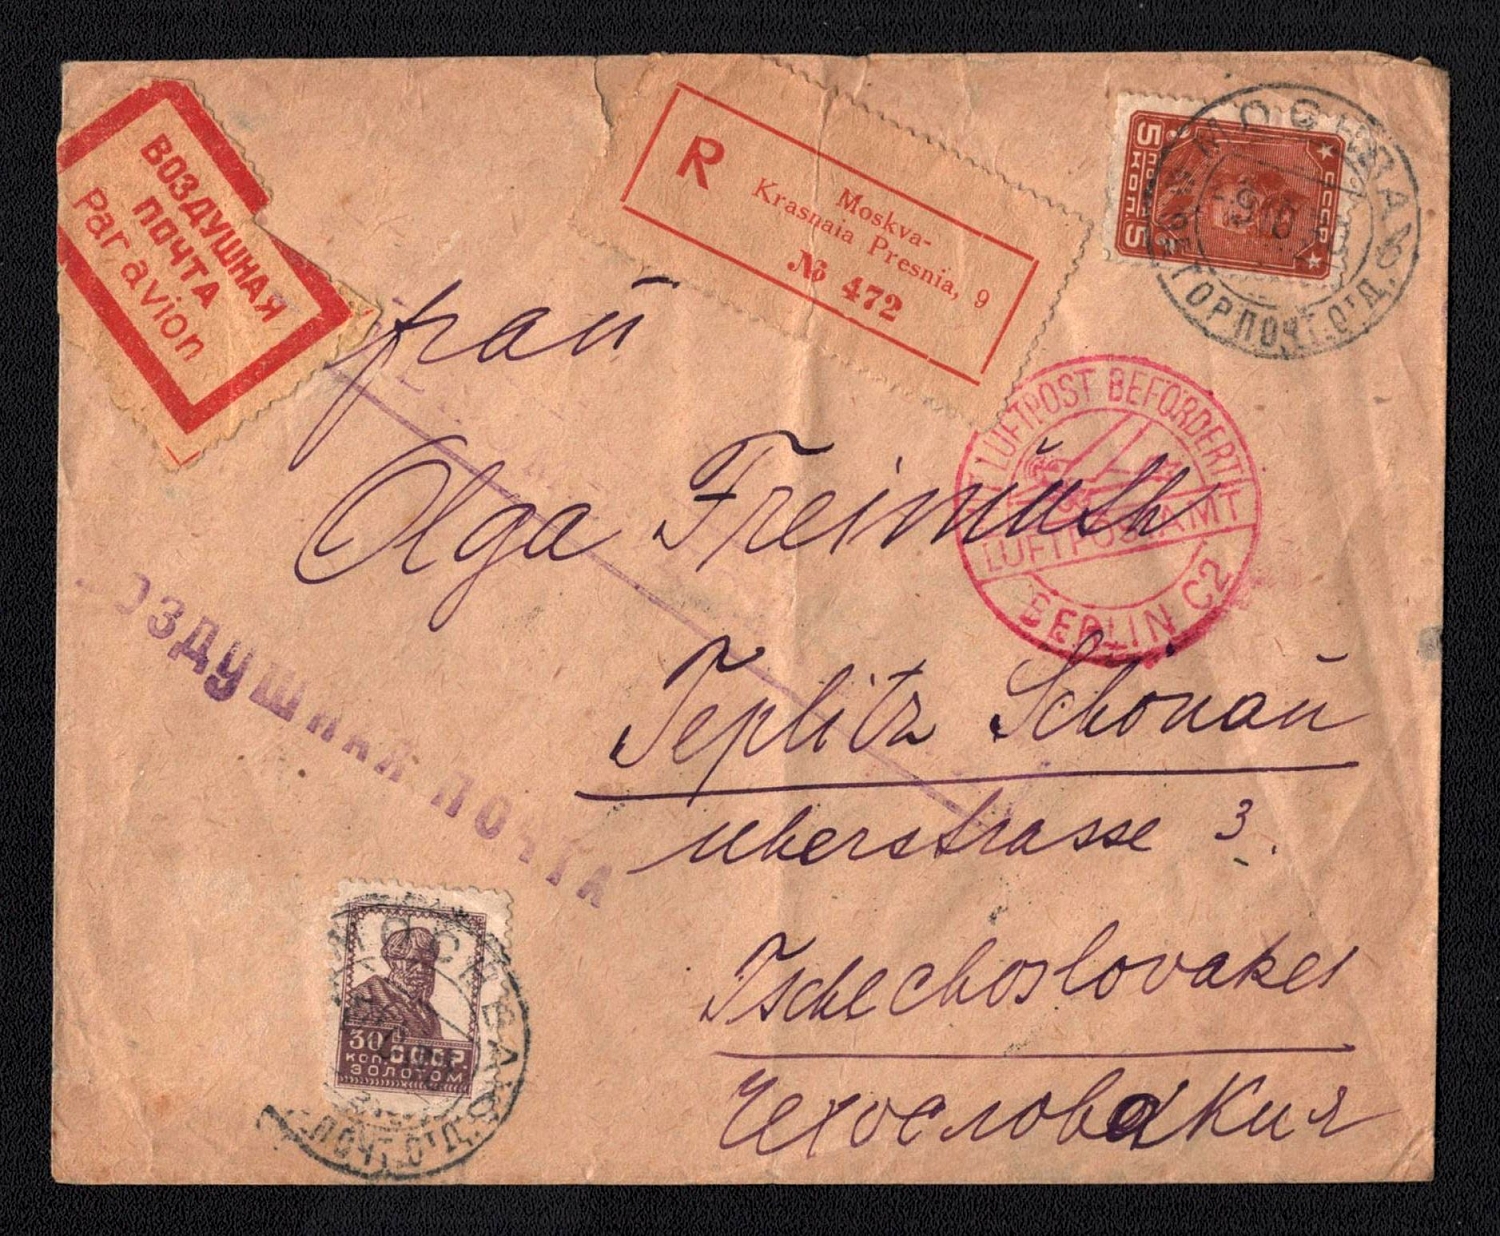 ВОЗДУШНАЯ
ПОЧТА
Par avion
R
Moskva-
Krasnaia Presniia, 9
№ 472
5 КОП 5
СССР
МОСКВА
ГОР.ПОЧТ.ОТД.
Frau
Olga Freimuth
LUFTPOST BEFÖRDERT
LUFTPOSTAMT
BERLIN C2
ВОЗДУШНАЯ ПОЧТА
Teplitz Schönau
Uherstrasse 3.
Tschechoslovakei
Чехословакия
30
КОП. СССР.
ЗОЛОТОМ
МОСКВА
ПОЧТ.ОТД.